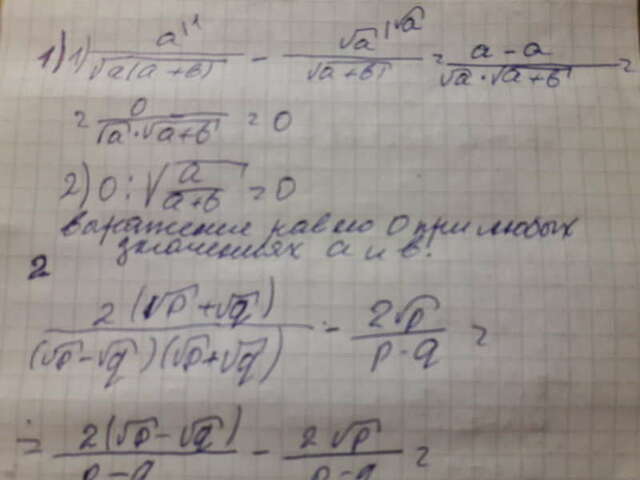 1) 1) a^{\1} / √(a(a+b)) − √a^{\√a} / √(a+b) = (a − a) / (√a · √(a+b)) =
= 0 / (√a · √(a+b)) = 0
2) 0 : √(a / (a+b)) = 0
выражение равно 0 при любых
значениях a и b.
2
2(√p + √q) / ((√p − √q)(√p + √q)) − 2√p / (p − q) =
= 2(√p − √q) / (p − q) − 2√p / (p − q) =